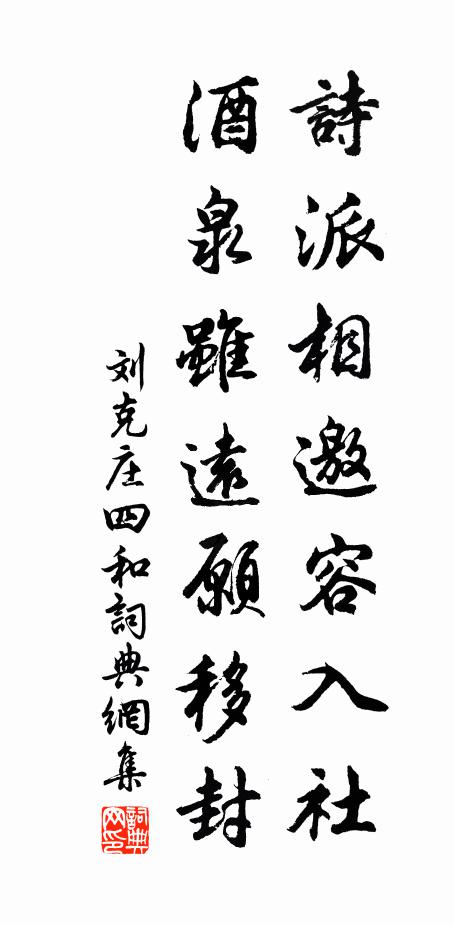 詩派相邀容入社
酒泉雖遠願移封
刘克庄四和詞典網集
詞典網印